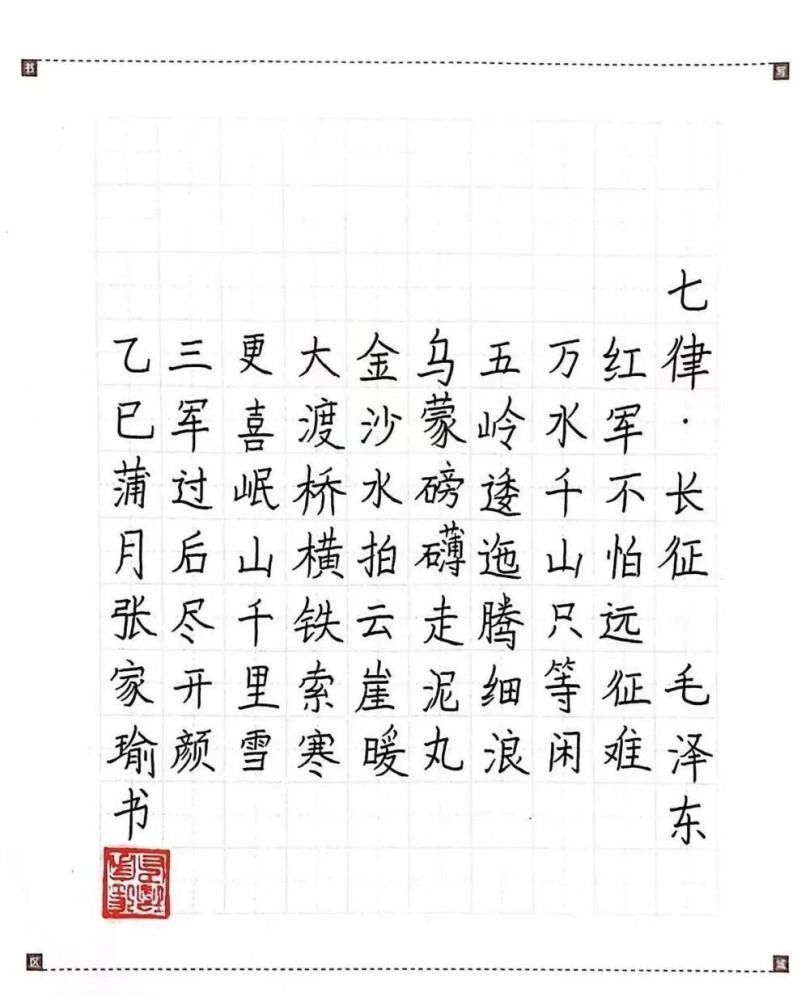 书写
七律·长征 毛泽东
红军不怕远征难
万水千山只等闲
五岭逶迤腾细浪
乌蒙磅礴走泥丸
金沙水拍云崖暖
大渡桥横铁索寒
更喜岷山千里雪
三军过后尽开颜
乙巳蒲月张家瑜书
区域